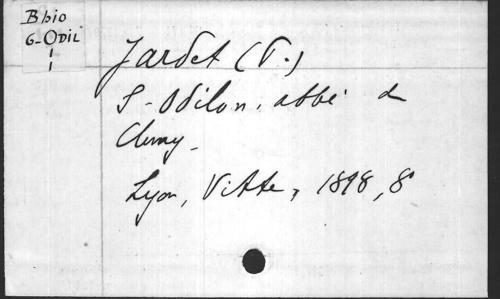 B bio
G-ODIL
1
1
Jardet (P.)
S-Odilon, abbé de
Cluny_
Lyon, Vitte, 1898, 8°